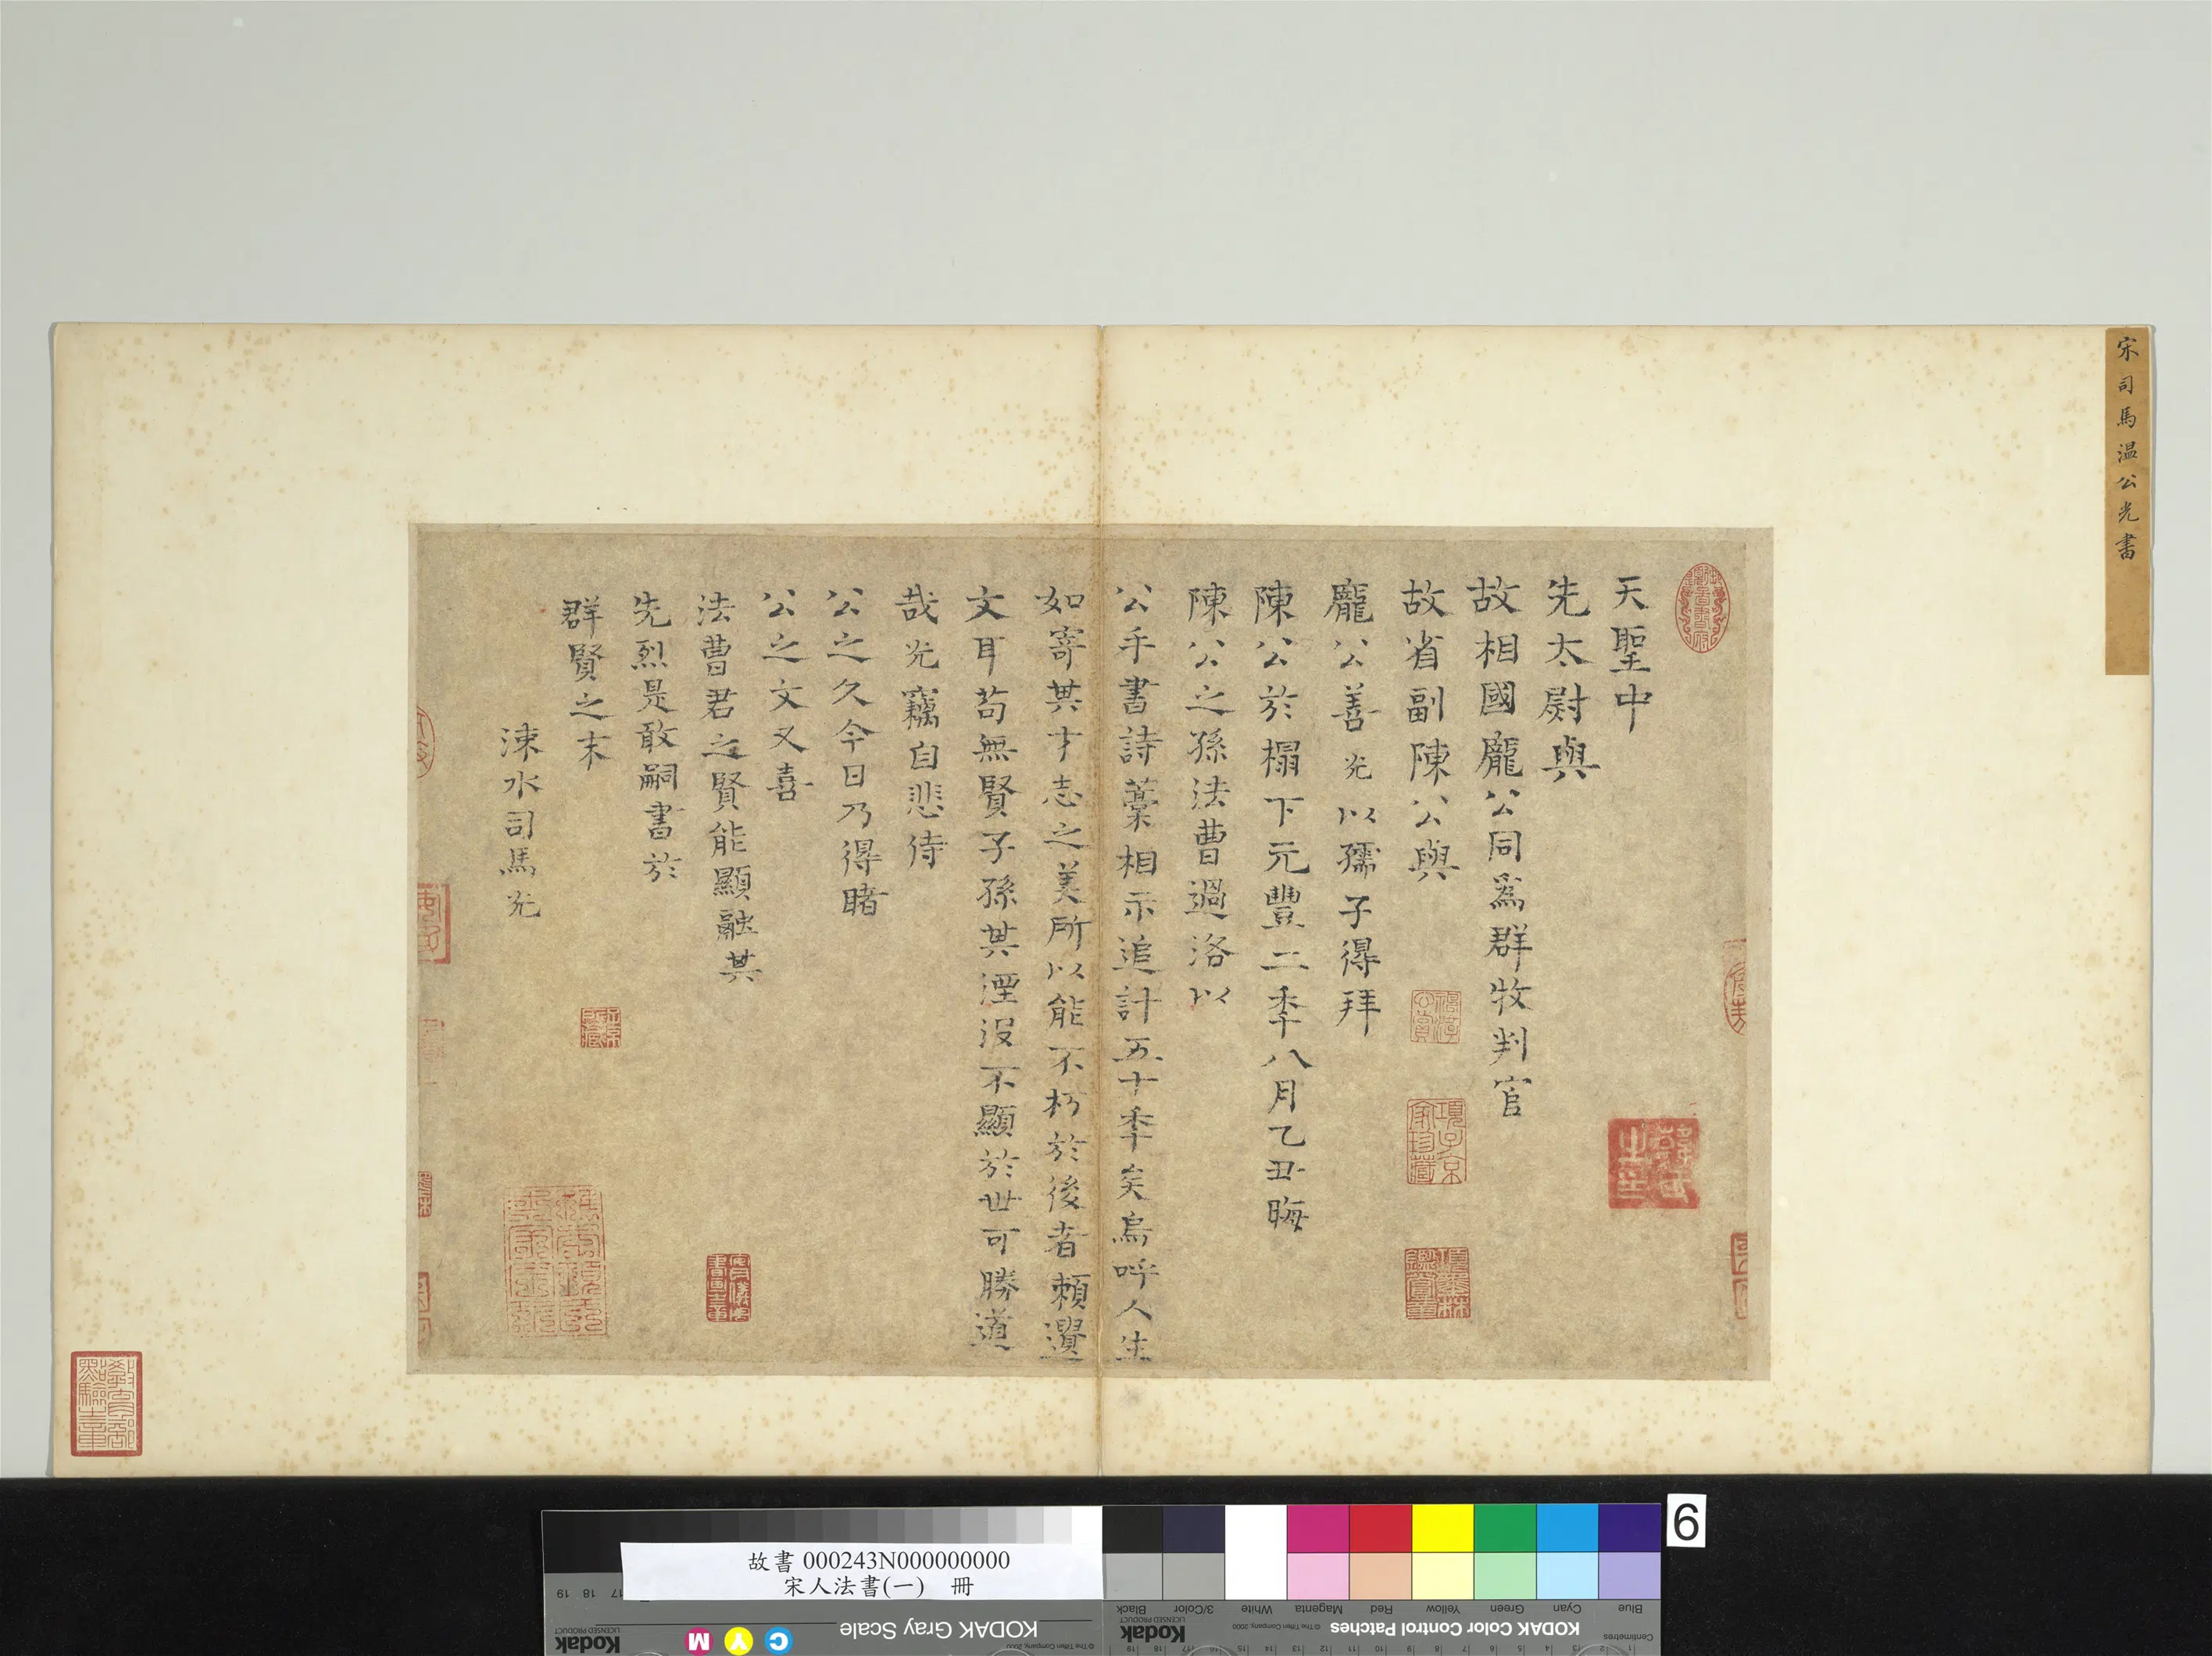 宋司馬溫公光書
天聖中
先太尉與
故相國龐公同爲群牧判官
故省副陳公與
龐公善光以孺子得拜
陳公於榻下元豐二秊八月乙丑晦
陳公之孫法曹過洛以
公手書詩藁相示追計五十秊矣烏呼人生
如寄其才志之美所以能不朽於後者賴遺
文耳苟無賢子孫其湮沒不顯於世可勝道
哉光竊自悲侍
公之久今日乃得睹
公之文又喜
法曹君之賢能顯融其
先烈是敢嗣書於
群賢之末
涑水司馬光
項子京家珍藏
項墨林鑑賞章
教育部點驗之章
6
故書 000243N000000000
宋人法書(一) 冊
KODAK Gray Scale
Kodak
LICENSED PRODUCT
C Y M
© The Tiffen Company, 2000
KODAK Color Control Patches
© The Tiffen Company, 2000
Kodak
LICENSED PRODUCT
Blue Cyan Green Yellow Red Magenta White 3/Color Black
Centimetres